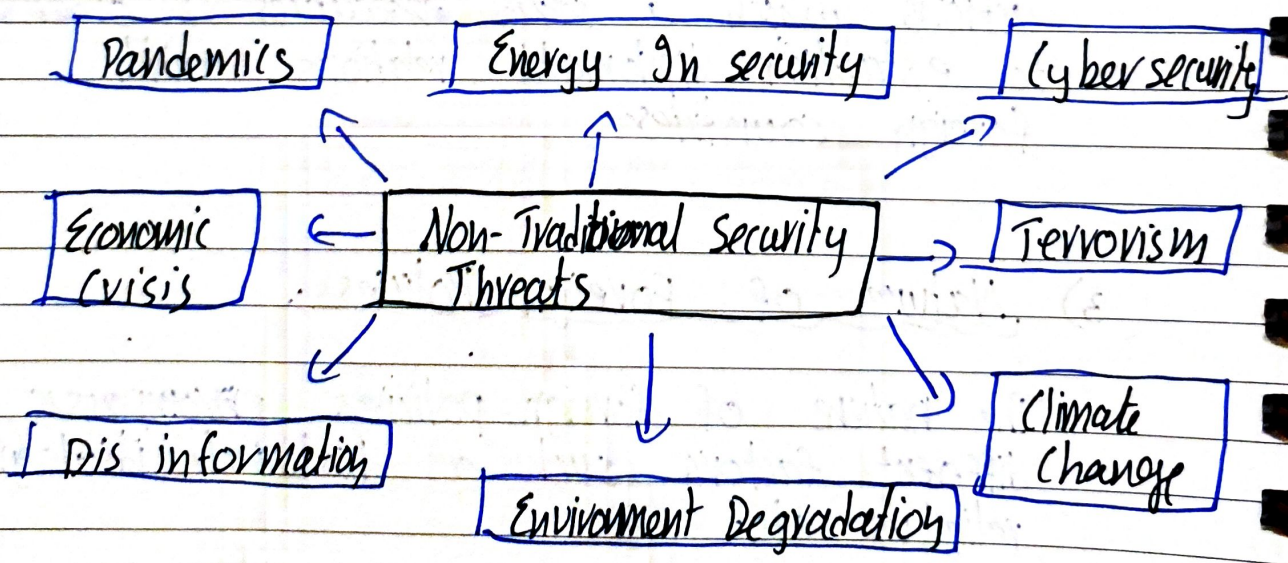 Pandemics
Energy In security
Cybersecurity
Economic
Crisis
Non-Traditional Security
Threats
Terrorism
Climate
Change
Dis information
Environment Degradation